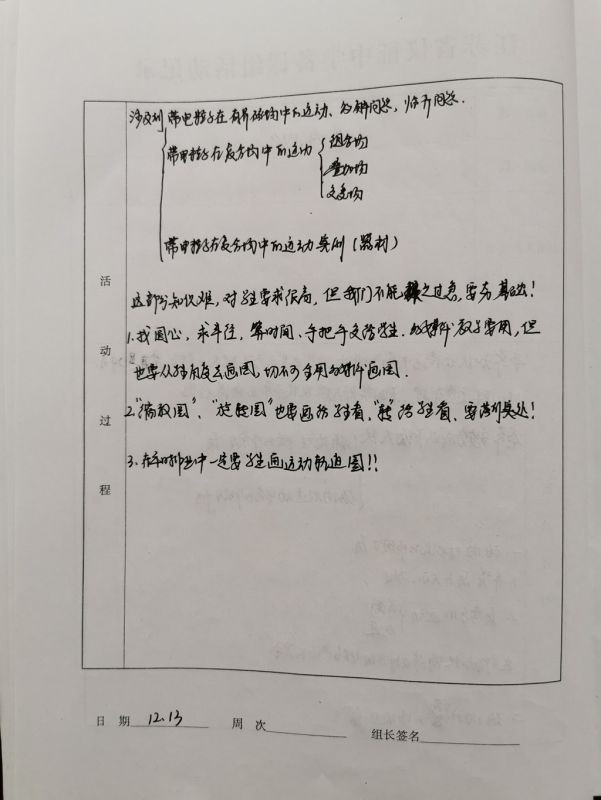 涉及到 带电粒子在有界磁场中的运动、多解问题,临界问题.
带电粒子在复合场中的运动 组合场
叠加场
交变场
带电粒子在复合场中的运动实例(器材)
这部分知识难,对学生要求很高,但我们不能 之过急,要夯基础!
1.找圆心,求半径,算时间、手把手交给学生. 教学要用,但
也要从 画图,切不可全用 画图.
2."缩放圆"、"旋转圆"也要画给学生看,"转"给学生看、要落到实处!
3.在平时作业中一定要学生画运动轨迹图!!
活
动
过
程
日 期 12.13 周 次
组长签名